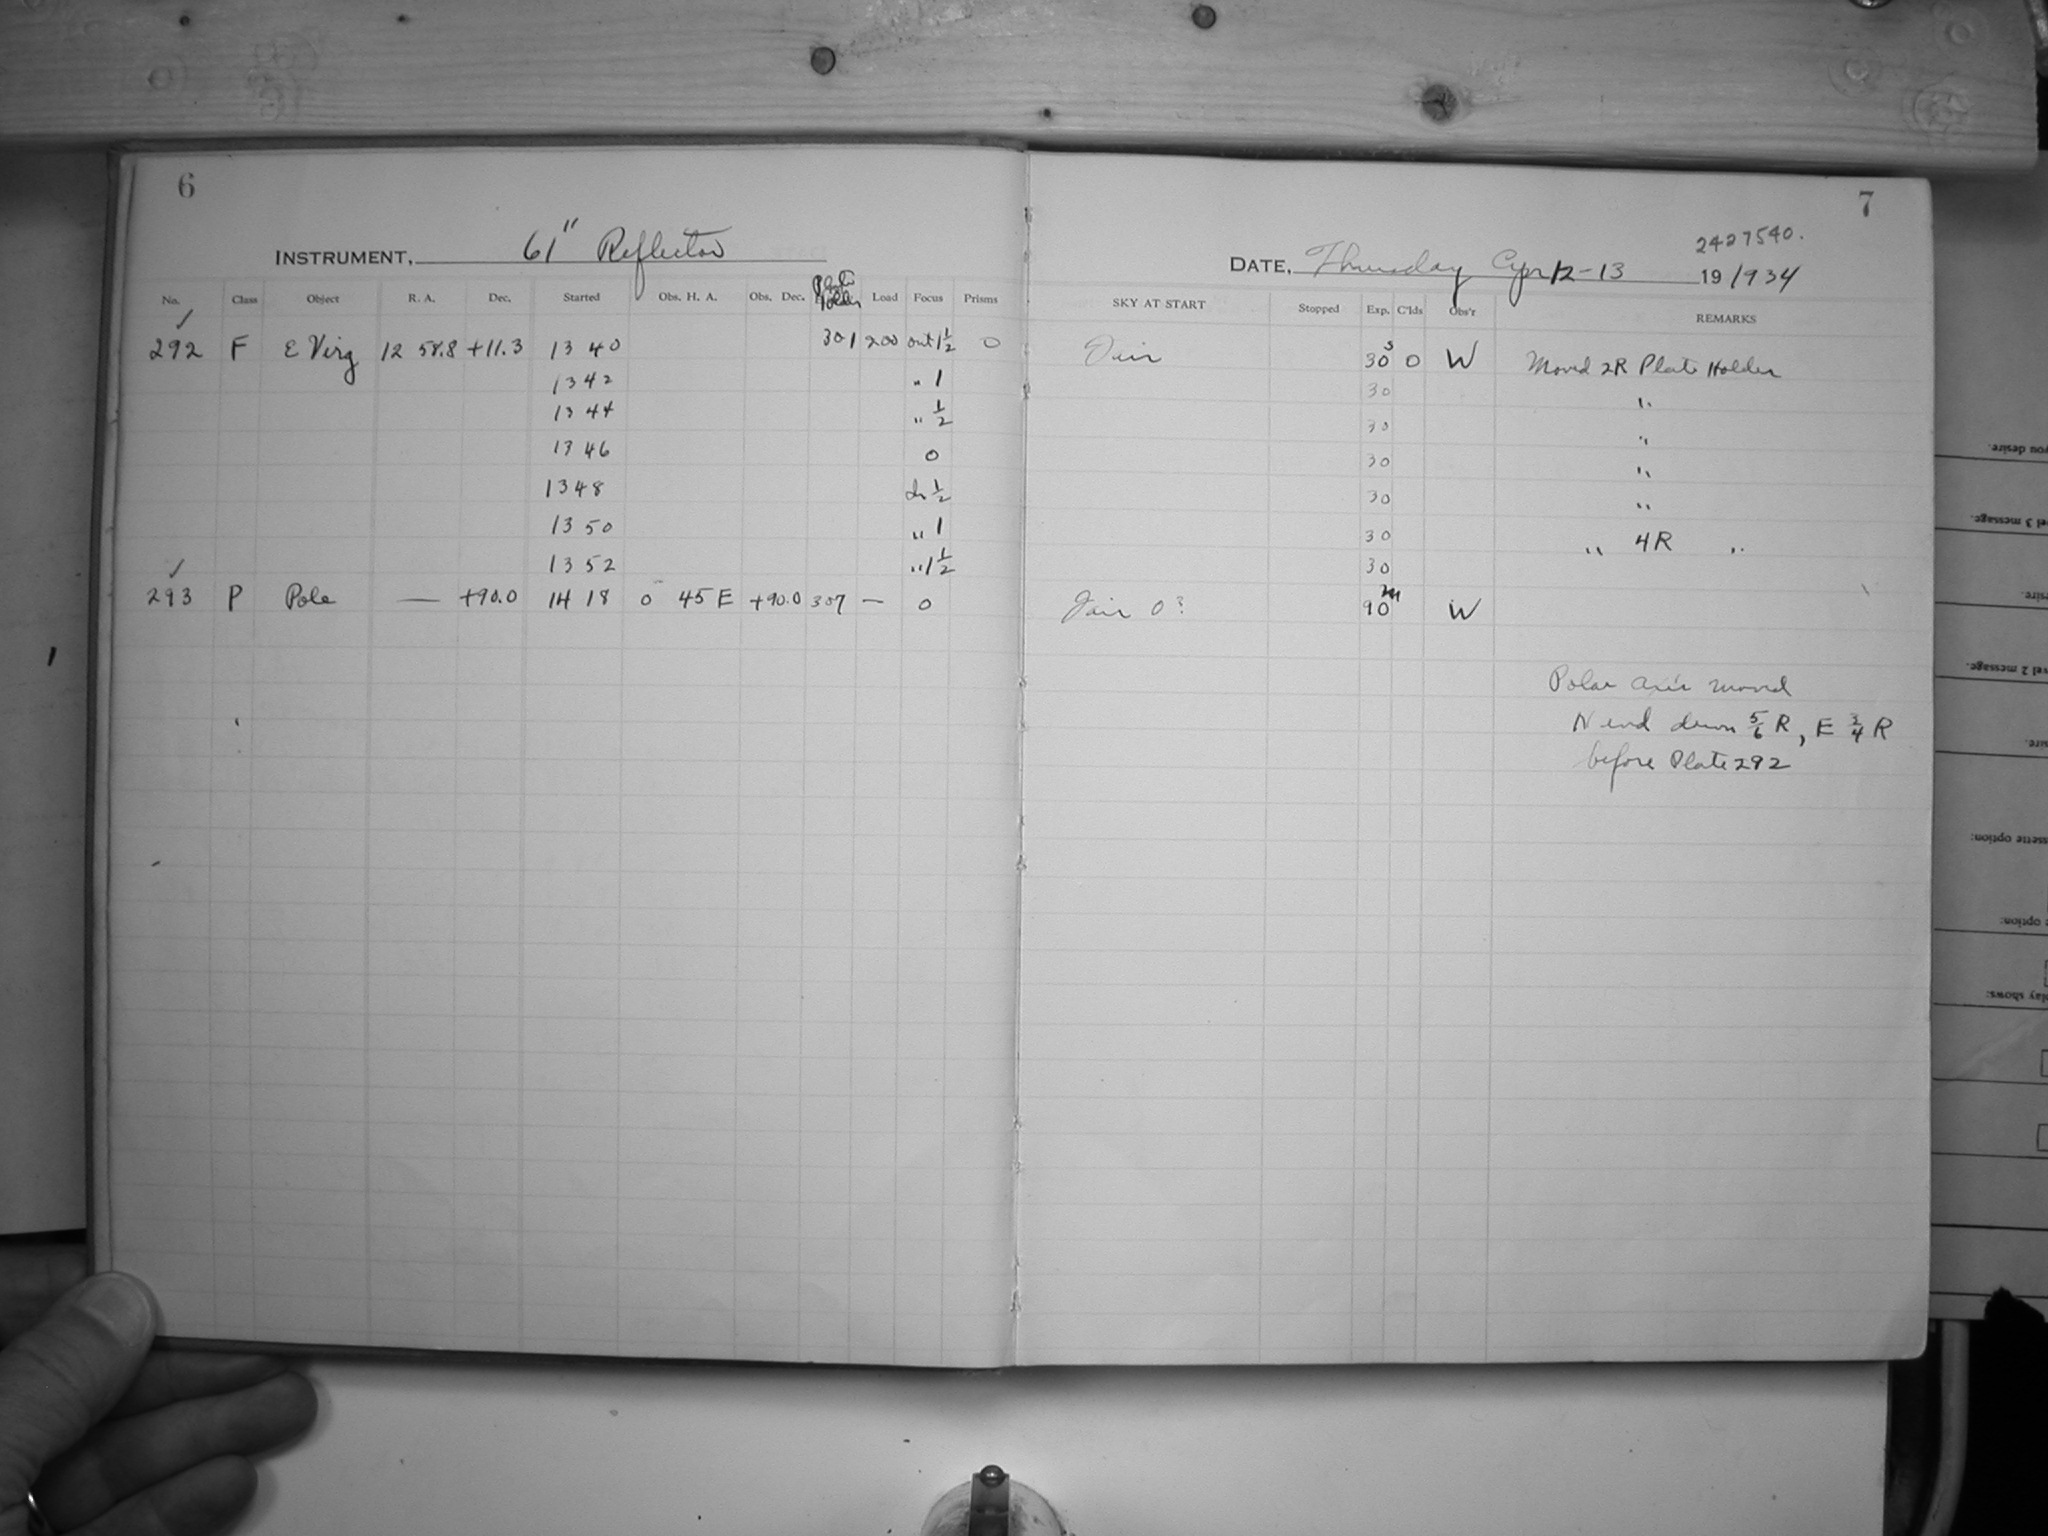 6
INSTRUMENT, 61" Reflector
No. Class Object R. A. Dec. Started Obs. H. A. Obs. Dec. Plate Holder Load Focus Prisms
292 F ε Virg 12 58.8 +11.3 13 40 301 200 out 1 1/2 0
13 42 " 1
13 44 " 1/2
13 46 0
13 48 In 1/2
13 50 " 1
13 52 " 1 1/2
293 P Pole — +90.0 14 18 0 45 E +90.0 307 — 0
7
2427540.
DATE, Thursday Apr 12-13 19/934
SKY AT START Stopped Exp. C'lds Obs'r REMARKS
Fair 30s 0 W Moved 2R Plate Holder
30 "
30 "
30 "
30 "
30 " 4R "
30
Fair 0? 90m W
Polar axis moved
N end down 5/6 R, E 3/4 R
before Plate 292
you desire.
el 3 message.
el 2 message.
option:
play shows: